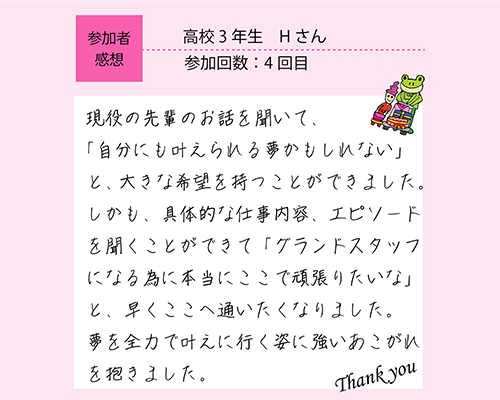 参加者
感想
高校３年生　Ｈさん
参加回数：４回目
現役の先輩のお話を聞いて、
「自分にも叶えられる夢かもしれない」
と、大きな希望を持つことができました。
しかも、具体的な仕事内容、エピソード
を聞くことができて「グランドスタッフ
になる為に本当にここで頑張りたいな」
と、早くここへ通いたくなりました。
夢を全力で叶えに行く姿に強いあこがれ
を抱きました。
Thank you